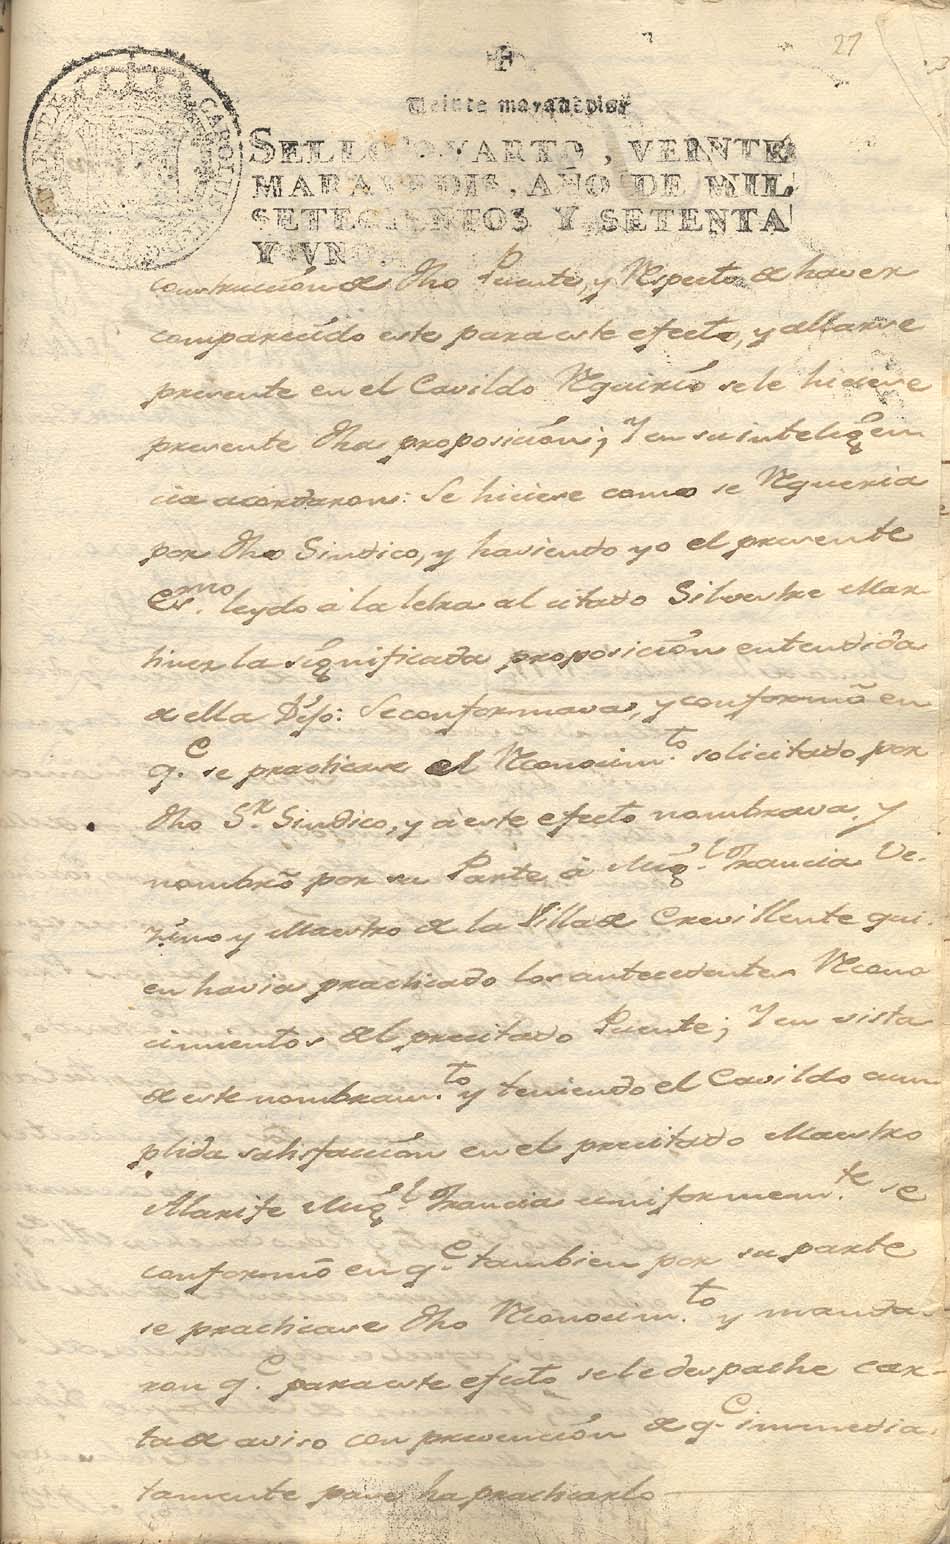 27
Veinte maravedis
SELLO QVARTO, VEINTE
MARAVEDIS, AÑO DE MIL
SETECIENTOS Y SETENTA
Y VNO.
CAROLUS
construccion de dho Puente, y respecto de haver
comparecido este para este efecto, y allarse
presente en el Cavildo requirió se le hiciese
presente dha proposición; Y en su inteligen
cia acordaron: Se hiciese como se requeria
por dho Sindico, y haviendo yo el presente
Es.no leydo á la letra al citado Silvestre Mar
tinez la significada proposición entendida
de ella Dijo: Se conformava, y conformó en
q.e se practicase el reconocim.to solicitado por
dho S.r Sindico, y á este efecto nombrava, y
nombró por su Parte á Mig.l Francia Ve-
zino y Maestro de la Villa de Crevillente qui-
en havia practicado los antecedentes recono
cimientos del precitado Puente; Y en vista
de este nombram.to y teniendo el Cavildo cum
plida satisfacción en el precitado Maestro
Alarife Mig.l Francia uniformem.te se
conformó en q.e tambien por su parte
se practicase dho reconocim.to y manda-
ron q.e para este efecto se le despache car-
ta de aviso con prevención de q.e inmedia-
tamente pase ha practicarlo